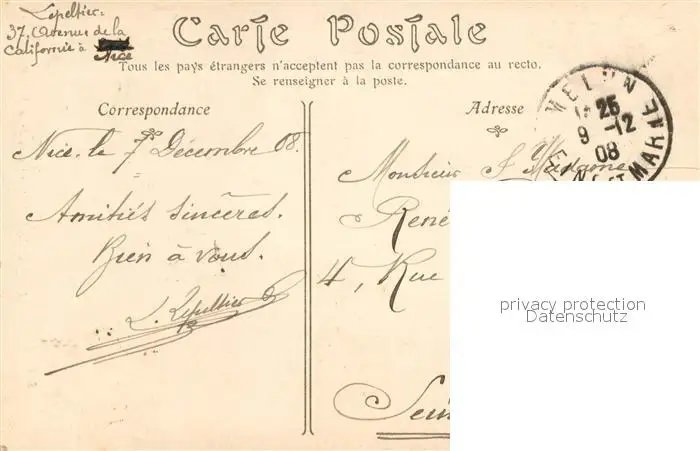 Lepeltier
37, Avenue de la
Californie à Nice
Carte Postale
Tous les pays étrangers n'acceptent pas la correspondance au recto.
Se renseigner à la poste.
Correspondance
Nice, le 7 Décembre 08.
Amitiés sincères.
Bien à vous.
L. Lepeltier
Adresse
MELUN
25
9 -12
08
SEINE ET MARNE
Monsieur & Madame
René
4, Rue
Sein
privacy protection
Datenschutz